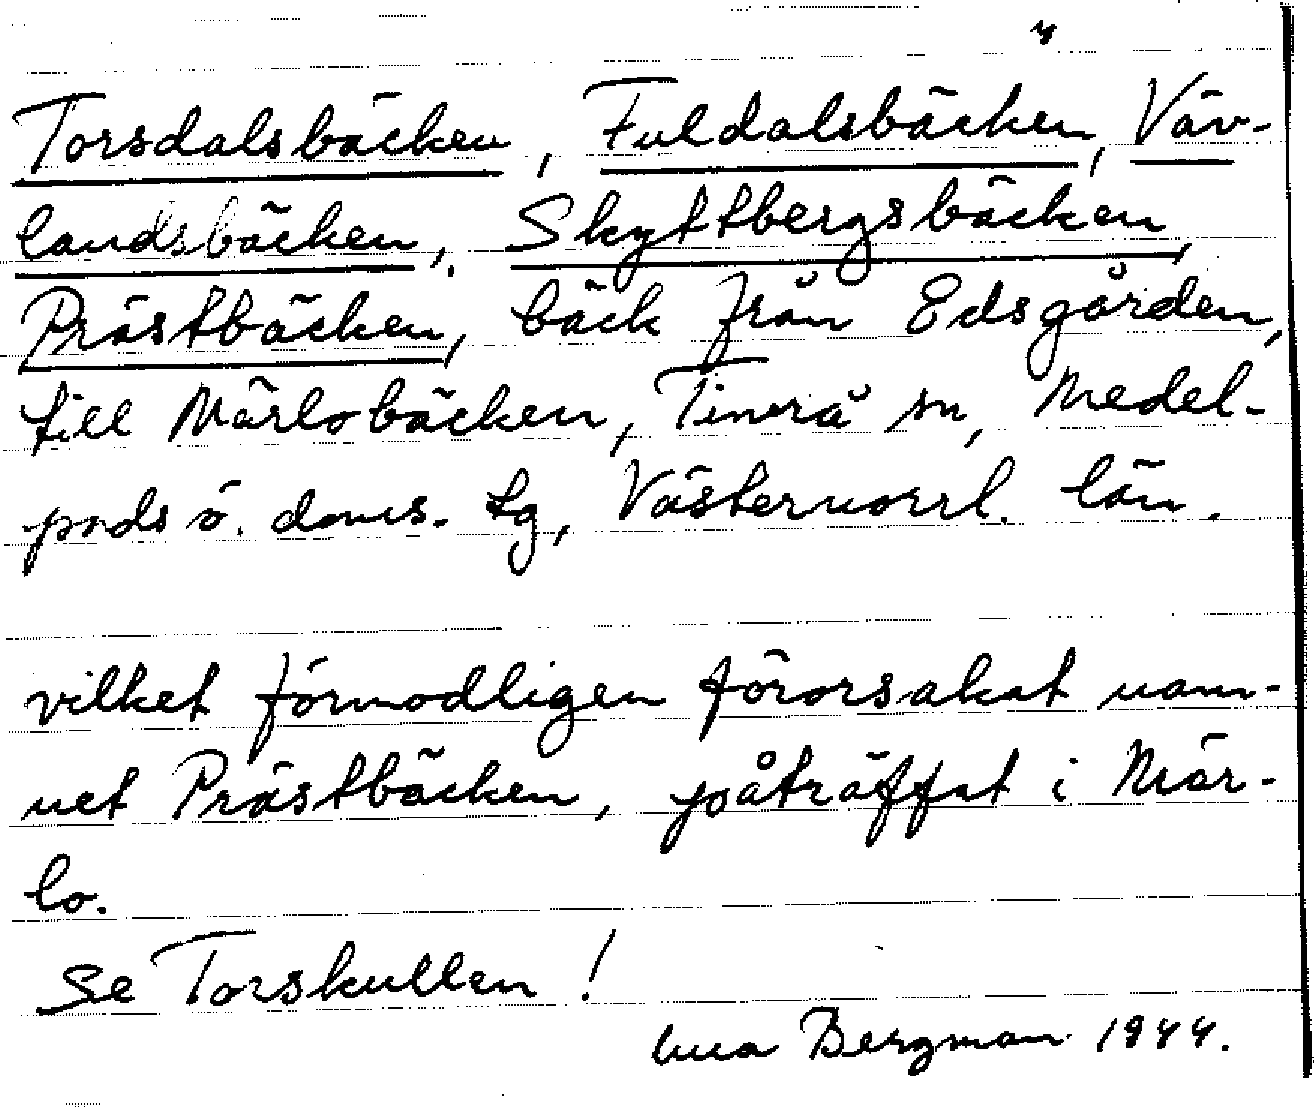 Torsdalsbäcken, Fuldalsbäcken, Väv-
landsbäcken, Skyttbergsbäcken,
Prästbäcken, bäck från Edsgården,
till Märlobäcken, Timrå sn, Medel-
pads ö. doms. tg, Västernorrl. län.
vilket förmodligen förorsakat nam-
net Prästbäcken, påträffat i Mär-
lo.
Se Torskullen!
Bergman 1944.